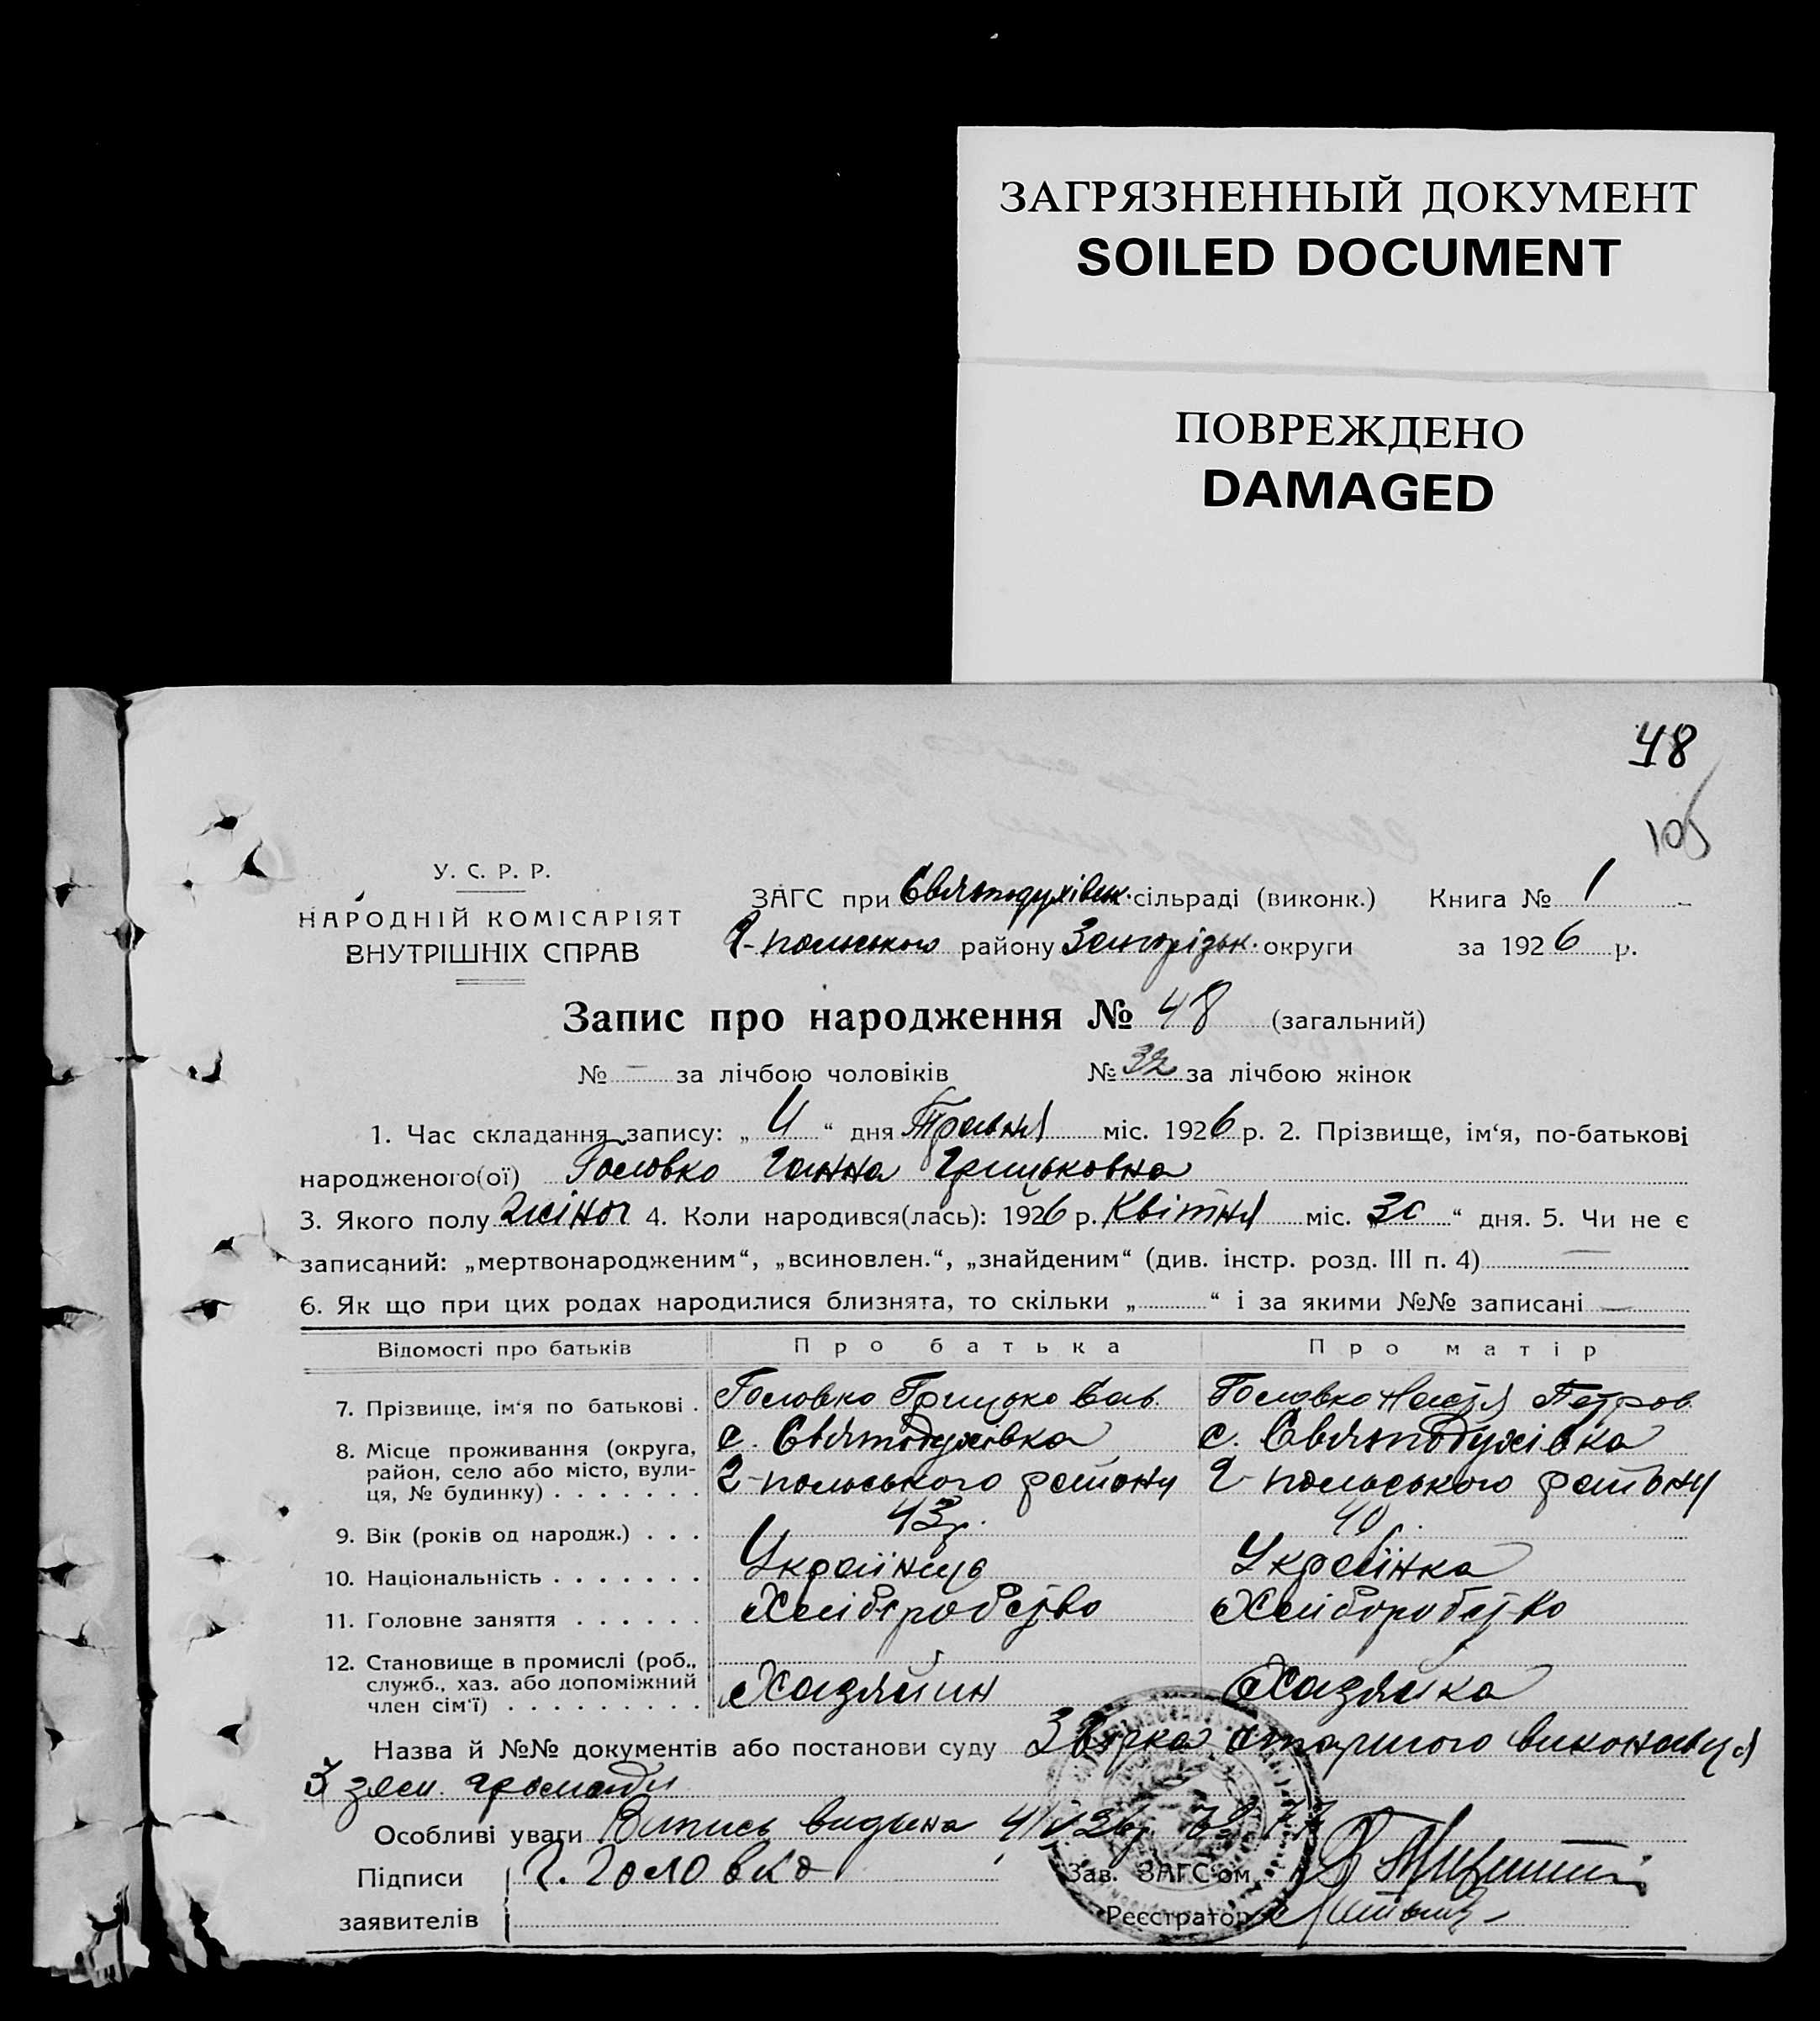 ЗАГРЯЗНЕННЫЙ ДОКУМЕНТ
SOILED DOCUMENT
ПОВРЕЖДЕНО
DAMAGED
48
105
У. С. Р. Р.
НАРОДНІЙ КОМІСАРІЯТ
ВНУТРІШНІХ СПРАВ
ЗАГС при Святодухівськ. сільраді (виконк.) Книга № 1
Г-польського району Запорізьк. округи за 1926 р.
Запис про народження № 48 (загальний)
№ — за лічбою чоловіків № 32 за лічбою жінок
1. Час складання запису: „ “ дня Травня міс. 1926 р. 2. Прізвище, ім‘я, по-батькові
народженого(ої) Головко Ганна Грицьковна
3. Якого полу жіноч 4. Коли народився(лась): 1926 р. Квітня міс. „30“ дня. 5. Чи не є
записаний: „мертвонародженим“, „всиновлен.“, „знайденим“ (див. інстр. розд. III п. 4) —
6. Як що при цих родах народилися близнята, то скільки „ “ і за якими №№ записані —
Відомості про батьків Про батька Про матір
7. Прізвище, ім‘я по батькові . Головко Грицько Сав. Головко Настя Петров.
8. Місце проживання (округа, район, село або місто, вули- ця, № будинку) . . . . . . . с. Святодухівка Г-польського району с. Святодухівка Г-польського району
9. Вік (років од народж.) . . . 43 р. 40
10. Національність . . . . . . . Українець Українка
11. Головне заняття . . . . . . Хліборобство Хліборобство
12. Становище в промислі (роб., служб., хаз. або допоміжний член сім‘ї) . . . . . . . . . Хазяйин Хазяйка
Назва й №№ документів або постанови суду Звірка старшого виконавця
3 зем. громади
Особливі уваги Випись видана
Підписи Г. Головко Зав. ЗАГС‘ом
заявителів Реєстратор